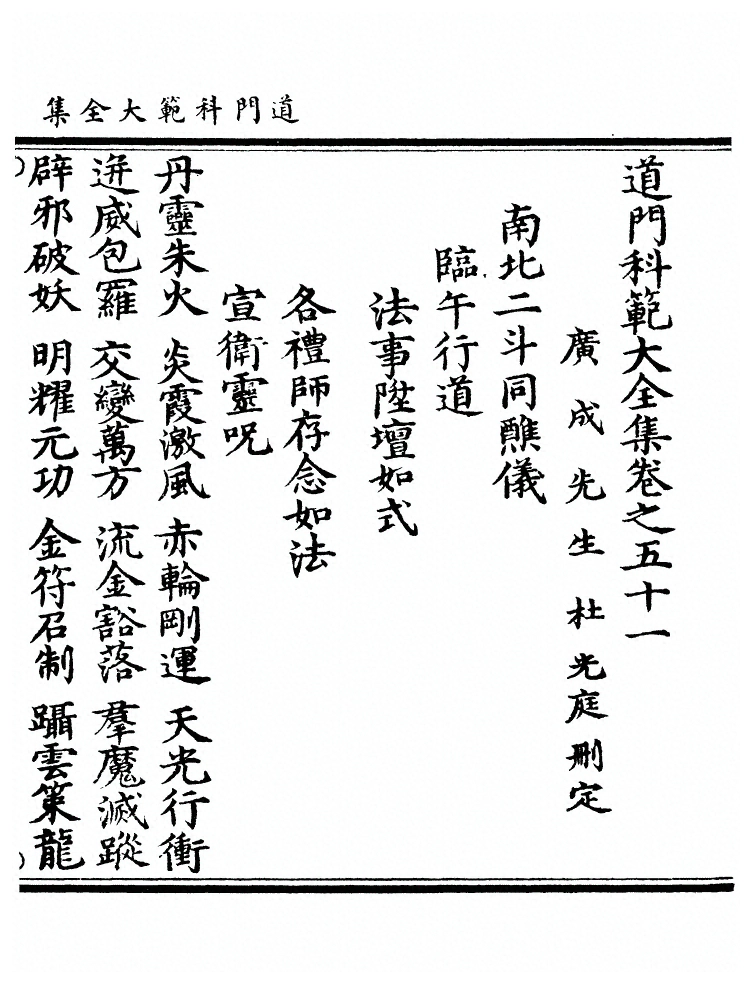 道門科範大全集
道門科範大全集卷之五十一
廣成先生杜光庭刪定
南北二斗同醮儀
臨午行道
法事陞壇如式
各禮師存念如法
宣衛靈呪
丹靈朱火　炎霞激風　赤輪剛運　天光行衝
迸威包羅　交變萬方　流金豁落　羣魔滅蹤
辟邪破妖　明耀元功　金符召制　躡雲策龍